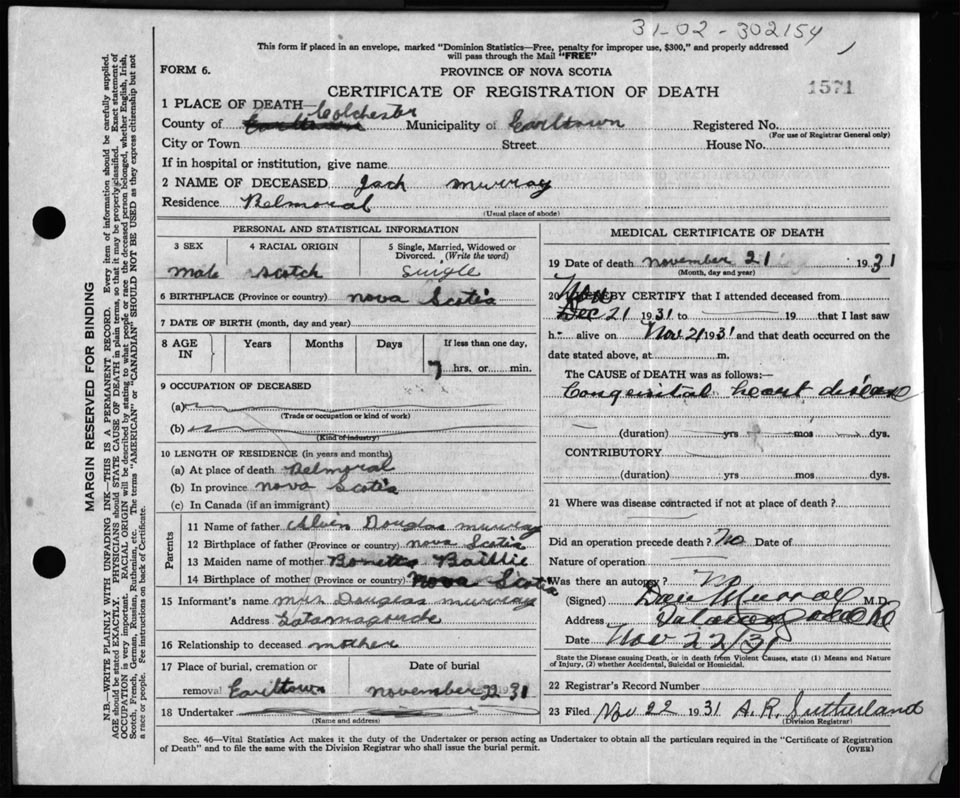 31-02-302154
This form if placed in an envelope, marked "Dominion Statistics—Free, penalty for improper use, $300," and properly addressed
will pass through the Mail "FREE"
FORM 6.
PROVINCE OF NOVA SCOTIA
CERTIFICATE OF REGISTRATION OF DEATH
1571
1 PLACE OF DEATH— Colchester
County of Earltown Municipality of Earltown Registered No.
(For use of Registrar General only)
City or Town Street House No.
If in hospital or institution, give name
2 NAME OF DECEASED Jack Murray
Residence Belmoral
(Usual place of abode)
PERSONAL AND STATISTICAL INFORMATION
3 SEX 4 RACIAL ORIGIN 5 Single, Married, Widowed or
Divorced. (Write the word)
male scotch single
6 BIRTHPLACE (Province or country) nova Scotia
7 DATE OF BIRTH (month, day and year)
8 AGE IN Years Months Days If less than one day,
7 hrs. or min.
9 OCCUPATION OF DECEASED
(a)
(Trade or occupation or kind of work)
(b)
(Kind of industry)
10 LENGTH OF RESIDENCE (in years and months)
(a) At place of death Belmoral
(b) In province nova Scotia
(c) In Canada (if an immigrant)
Parents
11 Name of father Alvin Douglas murray
12 Birthplace of father (Province or country) nova Scotia
13 Maiden name of mother Baillie
14 Birthplace of mother (Province or country) nova Scotia
15 Informant's name Mrs Douglas murray
Address Tatamagouche
16 Relationship to deceased mother
17 Place of burial, cremation or Date of burial
removal Earltown november 22 1931
18 Undertaker
(Name and address)
MEDICAL CERTIFICATE OF DEATH
19 Date of death november 21 1931
(Month, day and year)
20 I HEREBY CERTIFY that I attended deceased from Nov
Dec 21 1931 to 19 that I last saw
h alive on Nov 21 1931 and that death occurred on the
date stated above, at m.
The CAUSE of DEATH was as follows:—
Congenital heart disease
(duration) yrs mos dys.
CONTRIBUTORY
(duration) yrs mos dys.
21 Where was disease contracted if not at place of death?
Did an operation precede death? No Date of
Nature of operation
Was there an autopsy? No
(Signed) Dan Murray M.D.
Address Tatamagouche
Date Nov 22/31
State the Disease causing Death, or in death from Violent Causes, state (1) Means and Nature
of Injury, (2) whether Accidental, Suicidal or Homicidal.
22 Registrar's Record Number
23 Filed Nov 22 1931 A. R. Sutherland
(Division Registrar)
Sec. 46—Vital Statistics Act makes it the duty of the Undertaker or person acting as Undertaker to obtain all the particulars required in the "Certificate of Registration
of Death" and to file the same with the Division Registrar who shall issue the burial permit.
(OVER)
MARGIN RESERVED FOR BINDING
N.B.—WRITE PLAINLY WITH UNFADING INK—THIS IS A PERMANENT RECORD. Every item of information should be carefully supplied.
AGE should be stated EXACTLY. PHYSICIANS should STATE CAUSE OF DEATH in plain terms, so that it may be properly classified. Exact statement of
OCCUPATION is very important. RACIAL ORIGIN will be described by stating to what people or race the deceased person belonged, whether English, Irish,
Scotch, French, German, Russian, Ruthenian, etc. The terms "AMERICAN" or "CANADIAN" SHOULD NOT BE USED as they express citizenship but not
a race or people. Fee instructions on back of Certificate.